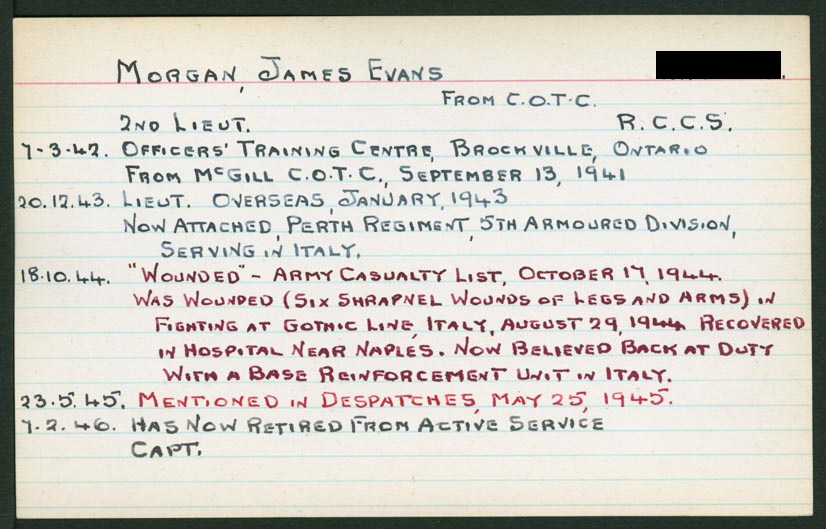 MORGAN, JAMES EVANS
FROM C.O.T.C.
2ND LIEUT. R.C.C.S.
7-3-42. OFFICERS' TRAINING CENTRE, BROCKVILLE, ONTARIO
FROM MCGILL C.O.T.C., SEPTEMBER 13, 1941
20.12.43. LIEUT. OVERSEAS, JANUARY, 1943
NOW ATTACHED, PERTH REGIMENT, 5TH ARMOURED DIVISION,
SERVING IN ITALY.
18.10.44. "WOUNDED" - ARMY CASUALTY LIST, OCTOBER 17, 1944.
WAS WOUNDED (SIX SHRAPNEL WOUNDS OF LEGS AND ARMS) IN
FIGHTING AT GOTHIC LINE, ITALY, AUGUST 29, 1944. RECOVERED
IN HOSPITAL NEAR NAPLES. NOW BELIEVED BACK AT DUTY
WITH A BASE REINFORCEMENT UNIT IN ITALY.
23.5.45. MENTIONED IN DESPATCHES, MAY 25, 1945.
7.2.46. HAS NOW RETIRED FROM ACTIVE SERVICE
CAPT.